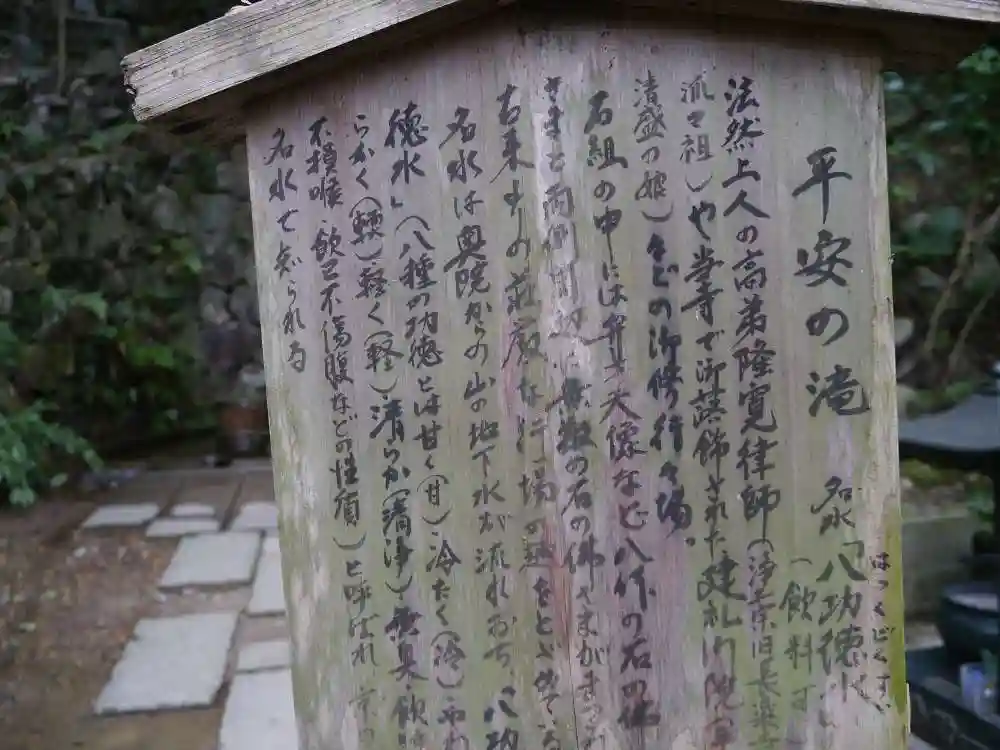 平安の滝 名水「八功徳水」
はっくどくすい
(飲料可
法然上人の高弟隆寛律師(浄土宗旧長楽寺
派々祖)や当寺で御落飾された建礼門院(平
清盛の娘)などの御修行々場。
石組の中には弁才天像など八体の石の佛
さまと両側
無数の石の佛さまがまつ
古来よりの荘厳な行場の趣をとどめている
名水は奥院からの山の地下水が流れおち、八功
徳水」(八種の功徳とは甘く(甘)冷たく(冷)やわ
らかく(輭)軽く(軽)清らか(清浄)無臭・飲
不損喉、飲已不傷腹などの性質)と呼ばれ京
名水で知られる